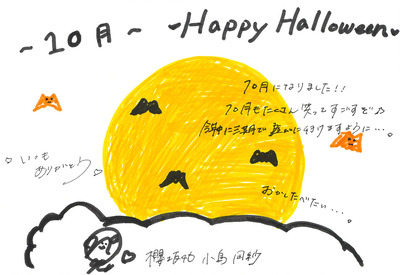 ~10月~ ♥Happy Halloween♥
10月になりました!!
10月もたくさん笑ってすごすぞ♪
今年中に三期で 行けますように…。
♡いつも
ありがとう♡
おかしたべたい…。
櫻坂46 小島凪紗